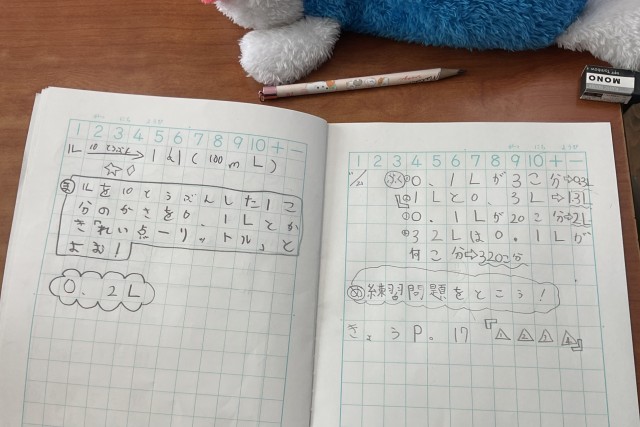 1 2 3 4 5 6 7 8 9 10 + −
1L 10とうぶん→ 1dl (100mL)
ま 1Lを10とうぶんした1こ
分のかさを0.1Lとか
き「れい点一リットル」と
よむ！
0.2L
1 2 3 4 5 6 7 8 9 10 + −
ふく①0.1Lが3こ分⇨0.3L
②1Lと0.3L⇨1.3L
③0.1Lが20こ分⇨2L
④32Lは0.1Lが
何こ分⇨320こ分
め 練習問題をとこう！
きょうP.17『△1 △2 △3 △4』
MONO